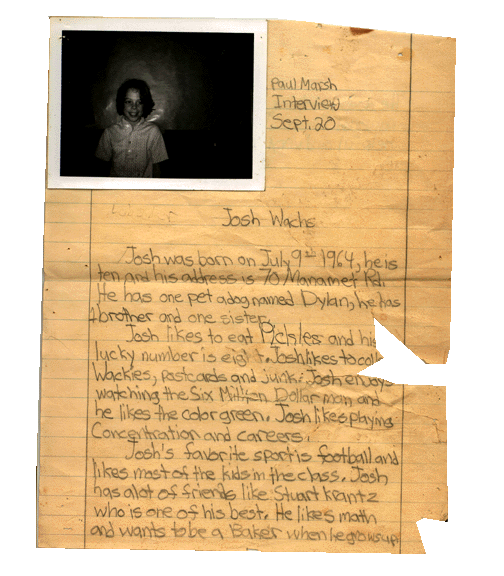 Paul Marsh
Interview
Sept. 20
Josh Wachs
Josh was born on July 9th 1964, he is
ten and his address is 70 Manamet Rd.
He has one pet a dog named Dylan, he has
1 brother and one sister.
Josh likes to eat Pickles and his
lucky number is eight. Josh likes to col
Wackies, postcards and junk. Josh enjoys
watching the Six Million Dollar man and
he likes the color green. Josh likes playing
Concentration and careers.
Josh's favorite sport is football and
likes most of the kids in the class. Josh
has alot of friends like Stuart Krantz
who is one of his best. He likes math
and wants to be a Baker when he grows up.